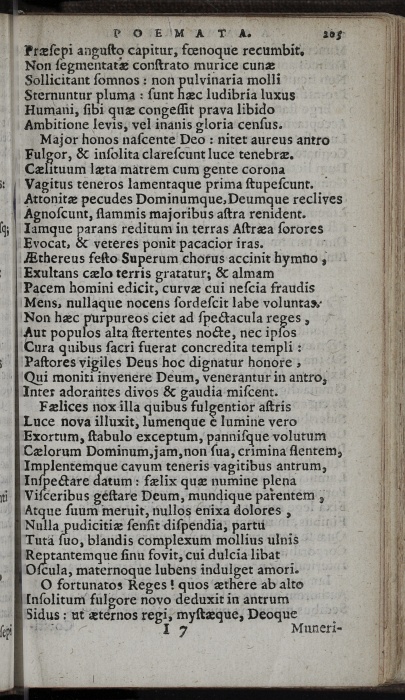 POEMATA. 205
Præsepi angusto capitur, fœnoque recumbit.
Non segmentatæ constrato murice cunæ
Sollicitant somnos : non pulvinaria molli
Sternuntur pluma : sunt hæc ludibria luxus
Humani, sibi quæ congessit prava libido
Ambitione levis, vel inanis gloria census.
Major honos nascente Deo : nitet aureus antro
Fulgor, & insolita clarescunt luce tenebræ.
Cælituum læta matrem cum gente corona
Vagitus teneros lamentaque prima stupescunt.
Attonitæ pecudes Dominumque, Deumque reclives
Agnoscunt, flammis majoribus astra renident.
Iamque parans reditum in terras Astræa sorores
Evocat, & veteres ponit pacacior iras.
Æthereus festo Superum chorus accinit hymno,
Exultans cælo terris gratatur; & almam
Pacem homini edicit, curvæ cui nescia fraudis
Mens, nullaque nocens sordescit labe voluntas.
Non hæc purpureos ciet ad spectacula reges,
Aut populos alta stertentes nocte, nec ipsos
Cura quibus sacri fuerat concredita templi :
Pastores vigiles Deus hoc dignatur honore,
Qui moniti invenere Deum, venerantur in antro,
Inter adorantes divos & gaudia miscent.
Fælices nox illa quibus fulgentior astris
Luce nova illuxit, lumenque è lumine vero
Exortum, stabulo exceptum, pannisque volutum
Cælorum Dominum, jam, non sua, crimina flentem,
Implentemque cavum teneris vagitibus antrum,
Inspectare datum : fælix quæ numine plena
Visceribus gestare Deum, mundique parentem,
Atque suum meruit, nullos enixa dolores,
Nulla pudicitiæ sensit dispendia, partu
Tuta suo, blandis complexum mollius ulnis
Reptantemque sinu fovit, cui dulcia libat
Oscula, maternoque lubens indulget amori.
O fortunatos Reges ! quos æthere ab alto
Insolitum fulgore novo deduxit in antrum
Sidus : ut æternos regi, mystæque, Deoque
I 7 Muneri-